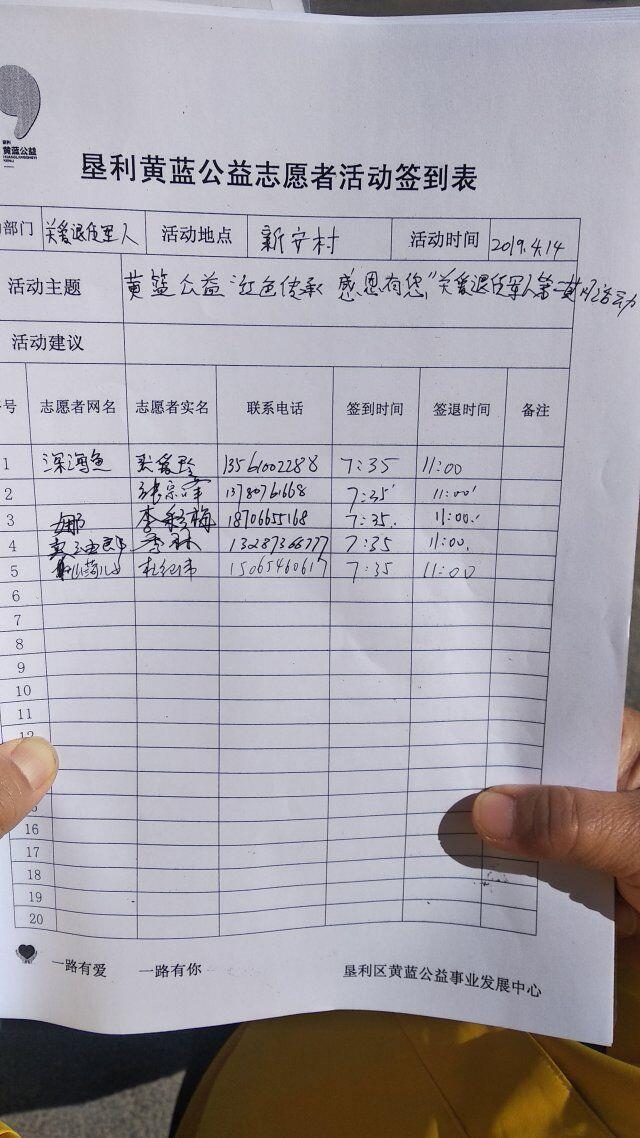 垦利
黄蓝公益
垦利黄蓝公益志愿者活动签到表
动部门 关爱退役军人 活动地点 新安村 活动时间 2019.4.14
活动主题 黄蓝公益"红色传承 感恩有您"关爱退役军人第 活动
活动建议
号 志愿者网名 志愿者实名 联系电话 签到时间 签退时间 备注
1 深海鱼 13561002288 7:35 11:00
2 张宗军 13780761668 7:35 11:00
3 娜 李彩梅 18706655168 7:35 11:00
4 李林 13287366777 7:35 11:00
5 杜纪伟 15065460617 7:35 11:00
6
7
8
9
10
11
12
16
17
18
19
20
一路有爱 一路有你 垦利区黄蓝公益事业发展中心